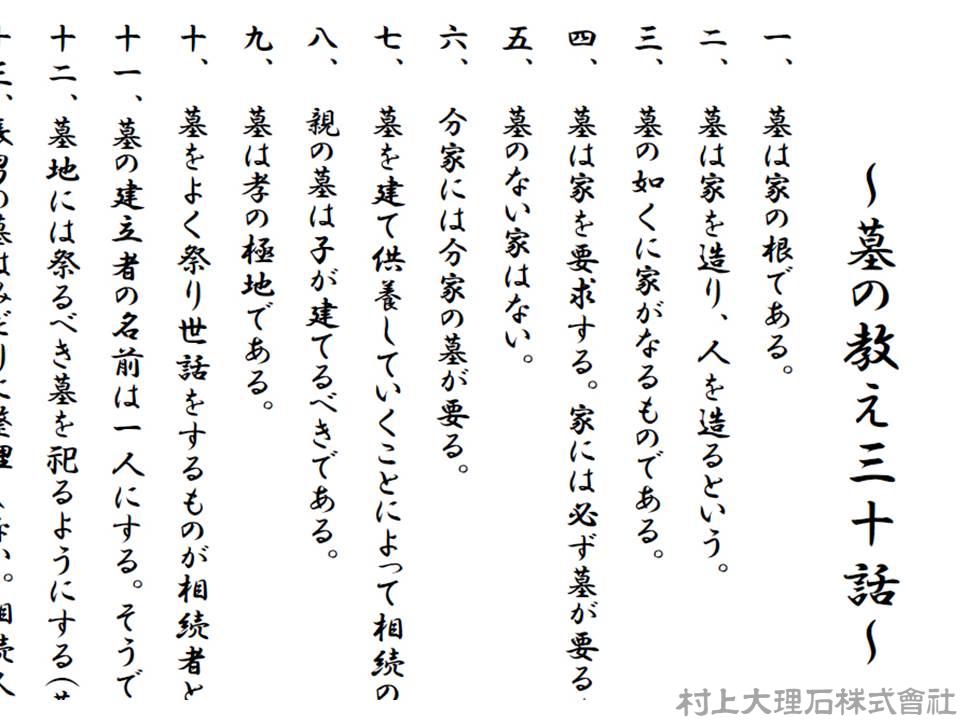 ～墓の教え三十話～
一、墓は家の根である。
二、墓は家を造り、人を造るという。
三、墓の如くに家がなるものである。
四、墓は家を要求する。家には必ず墓が要る
五、墓のない家はない。
六、分家には分家の墓が要る。
七、墓を建て供養していくことによって相続の
八、親の墓は子が建てるべきである。
九、墓は孝の極地である。
十、墓をよく祭り世話をするものが相続者と
十一、墓の建立者の名前は一人にする。そうで
十二、墓地には祭るべき墓を祀るようにする(
十三、長男の墓はみだりに整理しない。相続人
村上大理石株式會社